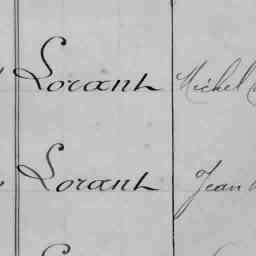 Lorant Michel
Lorant Jean